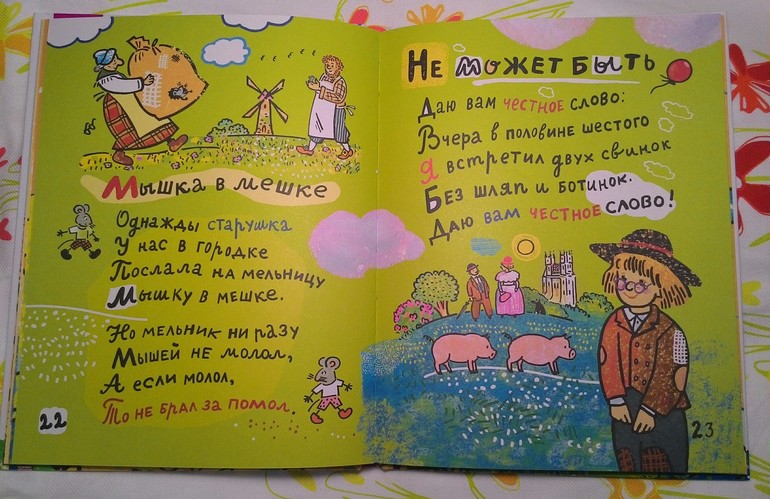 Мышка в мешке
Однажды старушка
У нас в городке
Послала на мельницу
Мышку в мешке.
Но мельник ни разу
Мышей не молол,
А если молол,
То не брал за помол.
22
Не может быть
Даю вам честное слово:
Вчера в половине шестого
Я встретил двух свинок
Без шляп и ботинок.
Даю вам честное слово!
23